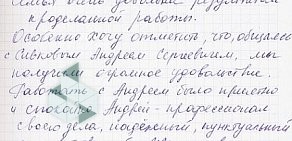 семья очень довольны результатом
проделанной работы.
Особенно хочу отметить, что, общаясь
с Сивковым Андреем Сергеевичем, мы
получили огромное удовольствие.
Работать с Андреем было приятно
и спокойно. Андрей - профессионал
своего дела, надёжный, пунктуальный